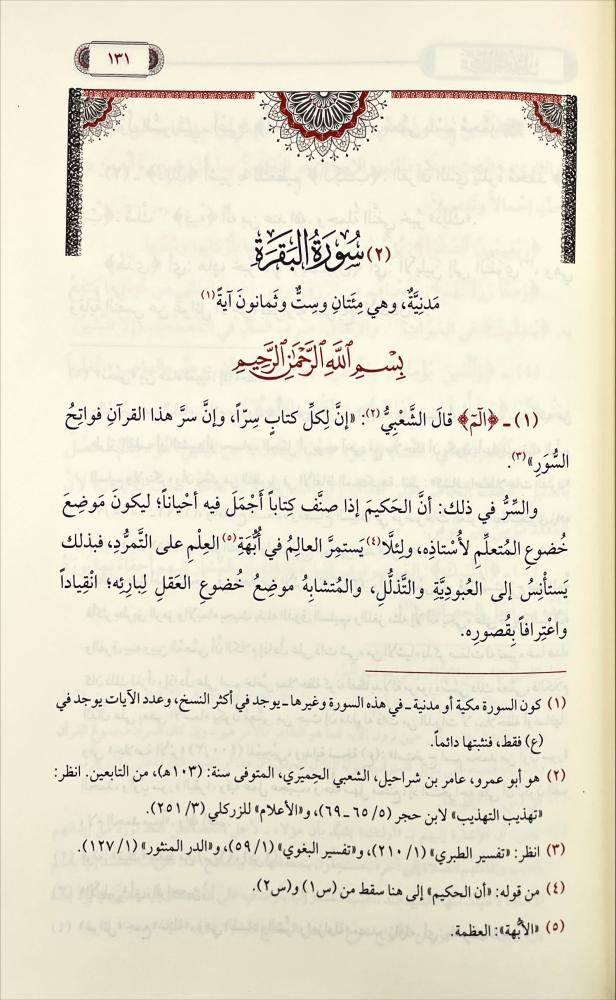 ١٣١
(٢) سُورَةُ البَقَرَةِ
مَدَنِيَّةٌ، وهي مِئَتانِ وسِتٌّ وثَمانونَ آيةً(١)
بِسْمِ اللَّهِ الرَّحْمَٰنِ الرَّحِيمِ
(١) ـ ﴿الٓمٓ﴾ قالَ الشَّعْبيُّ(٢): «إنَّ لِكلِّ كتابٍ سِرّاً، وإنَّ سرَّ هذا القرآنِ فواتِحُ
السُّوَرِ»(٣).
والسِّرُّ في ذلك: أنَّ الحَكيمَ إذا صنَّف كِتاباً أجْمَلَ فيه أحْياناً؛ ليكونَ مَوضِعَ
خُضوعِ المُتعلِّمِ لأُسْتاذِه، ولِئلَّا(٤) يَستمِرَّ العالِمُ في أُبُّهَةِ(٥) العِلْمِ على التَّمرُّدِ، فبذلك
يَستأْنِسُ إلى العُبوديَّةِ والتَّذلُّلِ، والمُتشابِهُ موضِعُ خُضوعِ العَقلِ لِبارِئِه؛ انْقِياداً
واعْتِرافاً بِقُصورِه.
(١) كون السورة مكية أو مدنية ـ في هذه السورة وغيرها ـ يوجد في أكثر النسخ، وعدد الآيات يوجد في
(ع) فقط، فنثبتها دائماً.
(٢) هو أبو عمرو، عامر بن شراحيل، الشعبي الحِميَري، المتوفى سنة: (١٠٣هـ)، من التابعين. انظر:
«تهذيب التهذيب» لابن حجر (٥/ ٦٥ ـ ٦٩)، و«الأعلام» للزركلي (٣/ ٢٥١).
(٣) انظر: «تفسير الطبري» (١/ ٢١٠)، و«تفسير البغوي» (١/ ٥٩)، و«الدر المنثور» (١/ ١٢٧).
(٤) من قوله: «أن الحكيم» إلى هنا سقط من (س١) و(س٢).
(٥) «الأُبُّهة»: العظمة.